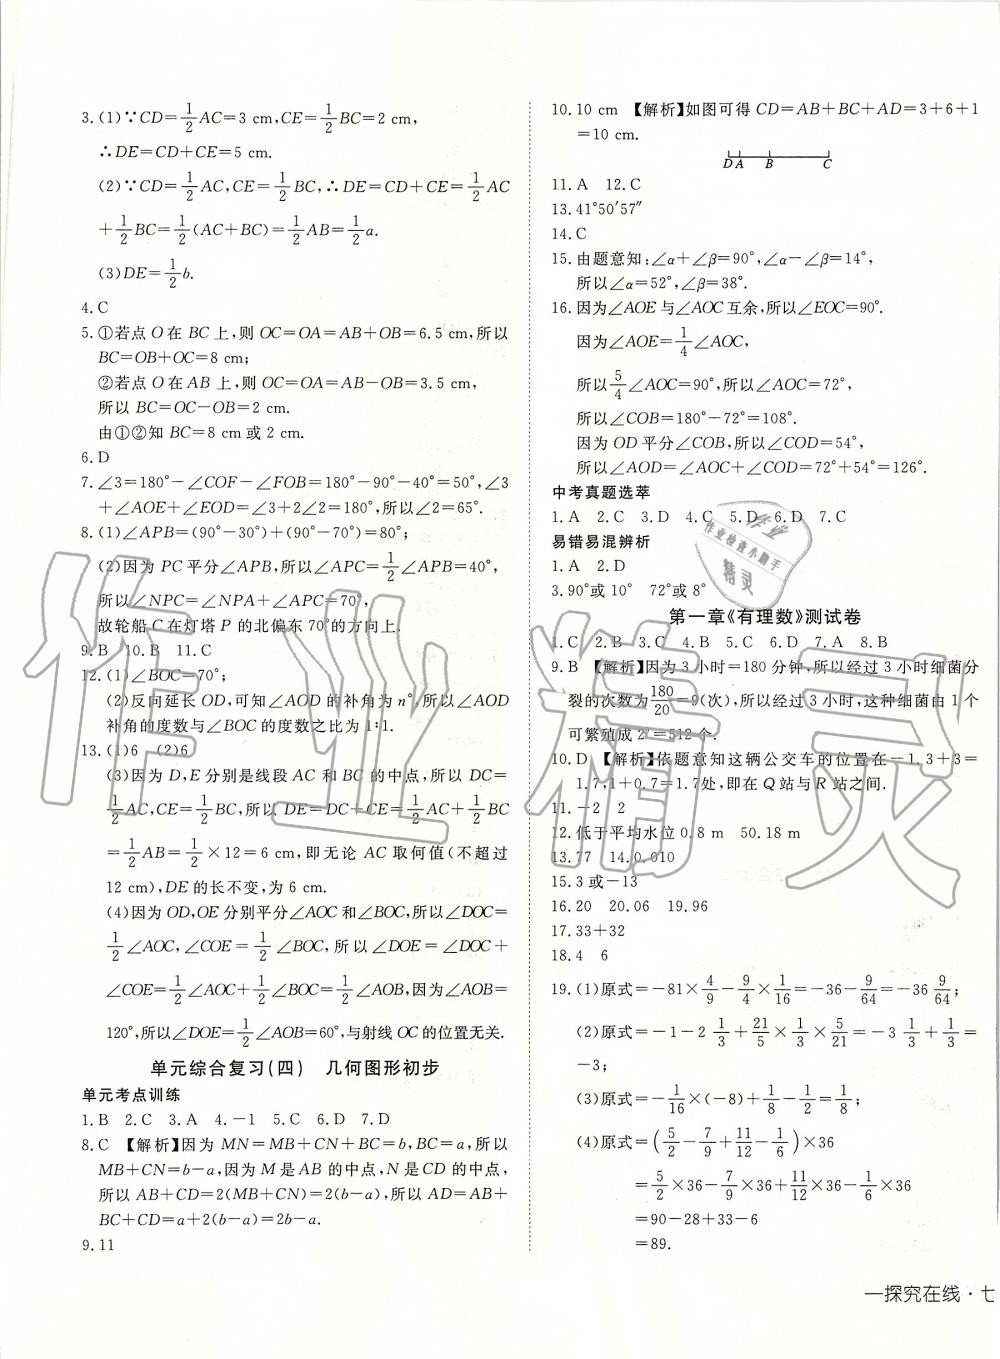 3.(1)∵CD=1/2AC=3 cm,CE=1/2BC=2 cm,
∴DE=CD+CE=5 cm.
(2)∵CD=1/2AC,CE=1/2BC,∴DE=CD+CE=1/2AC
+1/2BC=1/2(AC+BC)=1/2AB=1/2a.
(3)DE=1/2b.
4.C
5.①若点O在BC上,则OC=OA=AB+OB=6.5 cm,所以
BC=OB+OC=8 cm;
②若点O在AB上,则OC=OA=AB-OB=3.5 cm,
所以BC=OC-OB=2 cm.
由①②知BC=8 cm或2 cm.
6.D
7.∠3=180°-∠COF-∠FOB=180°-90°-40°=50°,∠3
+∠AOE+∠EOD=∠3+2∠2=180°,所以∠2=65°.
8.(1)∠APB=(90°-30°)+(90°-70°)=80°;
(2)因为PC平分∠APB,所以∠APC=1/2∠APB=40°,
所以∠NPC=∠NPA+∠APC=70°,
故轮船C在灯塔P的北偏东70°的方向上.
9.B 10.B 11.C
12.(1)∠BOC=70°;
(2)反向延长OD,可知∠AOD的补角为n°,所以∠AOD
补角的度数与∠BOC的度数之比为1:1.
13.(1)6 (2)6
(3)因为D,E分别是线段AC和BC的中点,所以DC=
1/2AC,CE=1/2BC,所以DE=DC+CE=1/2AC+1/2BC
=1/2AB=1/2×12=6 cm,即无论AC取何值(不超过
12 cm),DE的长不变,为6 cm.
(4)因为OD,OE分别平分∠AOC和∠BOC,所以∠DOC=
1/2∠AOC,∠COE=1/2∠BOC,所以∠DOE=∠DOC+
∠COE=1/2∠AOC+1/2∠BOC=1/2∠AOB,因为∠AOB=
120°,所以∠DOE=1/2∠AOB=60°,与射线OC的位置无关.
单元综合复习(四) 几何图形初步
单元考点训练
1.B 2.C 3.A 4.-1 5.C 6.D 7.D
8.C 【解析】因为MN=MB+CN+BC=b,BC=a,所以
MB+CN=b-a,因为M是AB的中点,N是CD的中点,
所以AB+CD=2(MB+CN)=2(b-a),所以AD=AB+
BC+CD=a+2(b-a)=2b-a.
9.11
10.10 cm 【解析】如图可得CD=AB+BC+AD=3+6+1
=10 cm.
D A B C
11.A 12.C
13.41°50′57″
14.C
15.由题意知:∠α+∠β=90°,∠α-∠β=14°,
所以∠α=52°,∠β=38°.
16.因为∠AOE与∠AOC互余,所以∠EOC=90°.
因为∠AOE=1/4∠AOC,
所以5/4∠AOC=90°,所以∠AOC=72°,
所以∠COB=180°-72°=108°.
因为OD平分∠COB,所以∠COD=54°,
所以∠AOD=∠AOC+∠COD=72°+54°=126°.
中考真题选萃
1.A 2.C 3.D 4.C 5.D 6.D 7.C
易错易混辨析
1.A 2.D
3.90°或10° 72°或8°
第一章《有理数》测试卷
1.C 2.B 3.C 4.B 5.C 6.D 7.A 8.B
9.B 【解析】因为3小时=180分钟,所以经过3小时细菌分
裂的次数为180/20=9(次),所以经过3小时,这种细菌由1个
可繁殖成2⁹=512个.
10.D 【解析】依题意知这辆公交车的位置在-1.3+3=
1.7,1+0.7=1.7处,即在Q站与R站之间.
11.-2 2
12.低于平均水位0.8 m 50.18 m
13.77 14.0.010
15.3或-13
16.20 20.06 19.96
17.33+32
18.4 6
19.(1)原式=-81×4/9-9/4×1/16=-36-9/64=-36 9/64;
(2)原式=-1-2 1/3+21/5×1/3×5/21=-3 1/3+1/3=
-3;
(3)原式=-1/16×(-8)+1/8-1/2=1/8;
(4)原式=(5/2-7/9+11/12-1/6)×36
=5/2×36-7/9×36+11/12×36-1/6×36
=90-28+33-6
=89.
一探究在线·七
作业精灵
作业
作业检查小助手
精灵